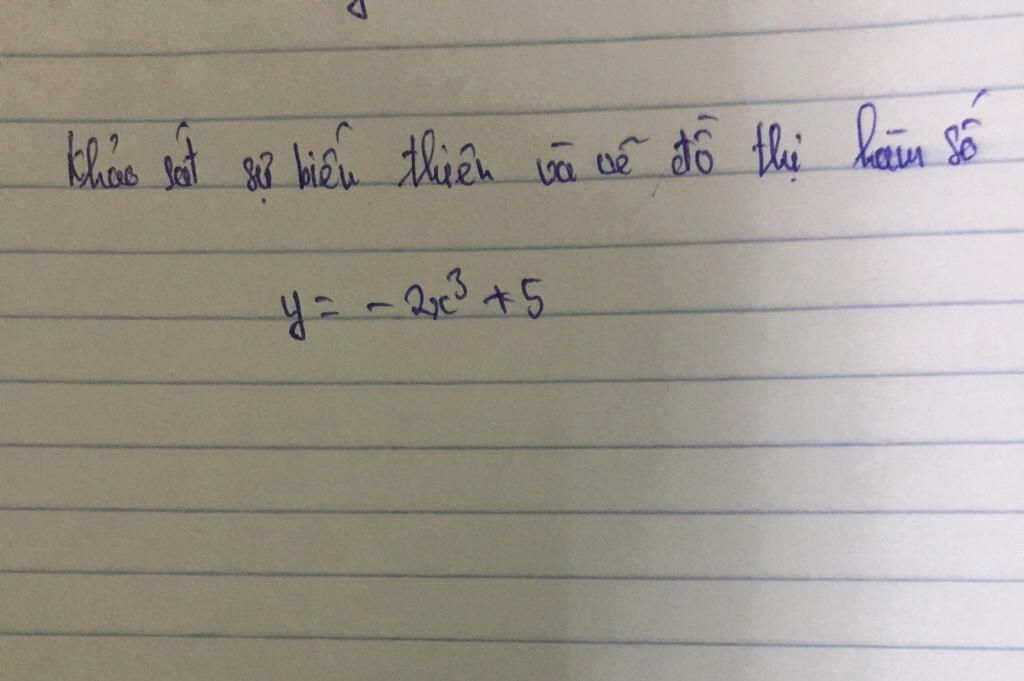 Khảo sát sự biến thiên và vẽ đồ thị hàm số
y = - 2x³ + 5